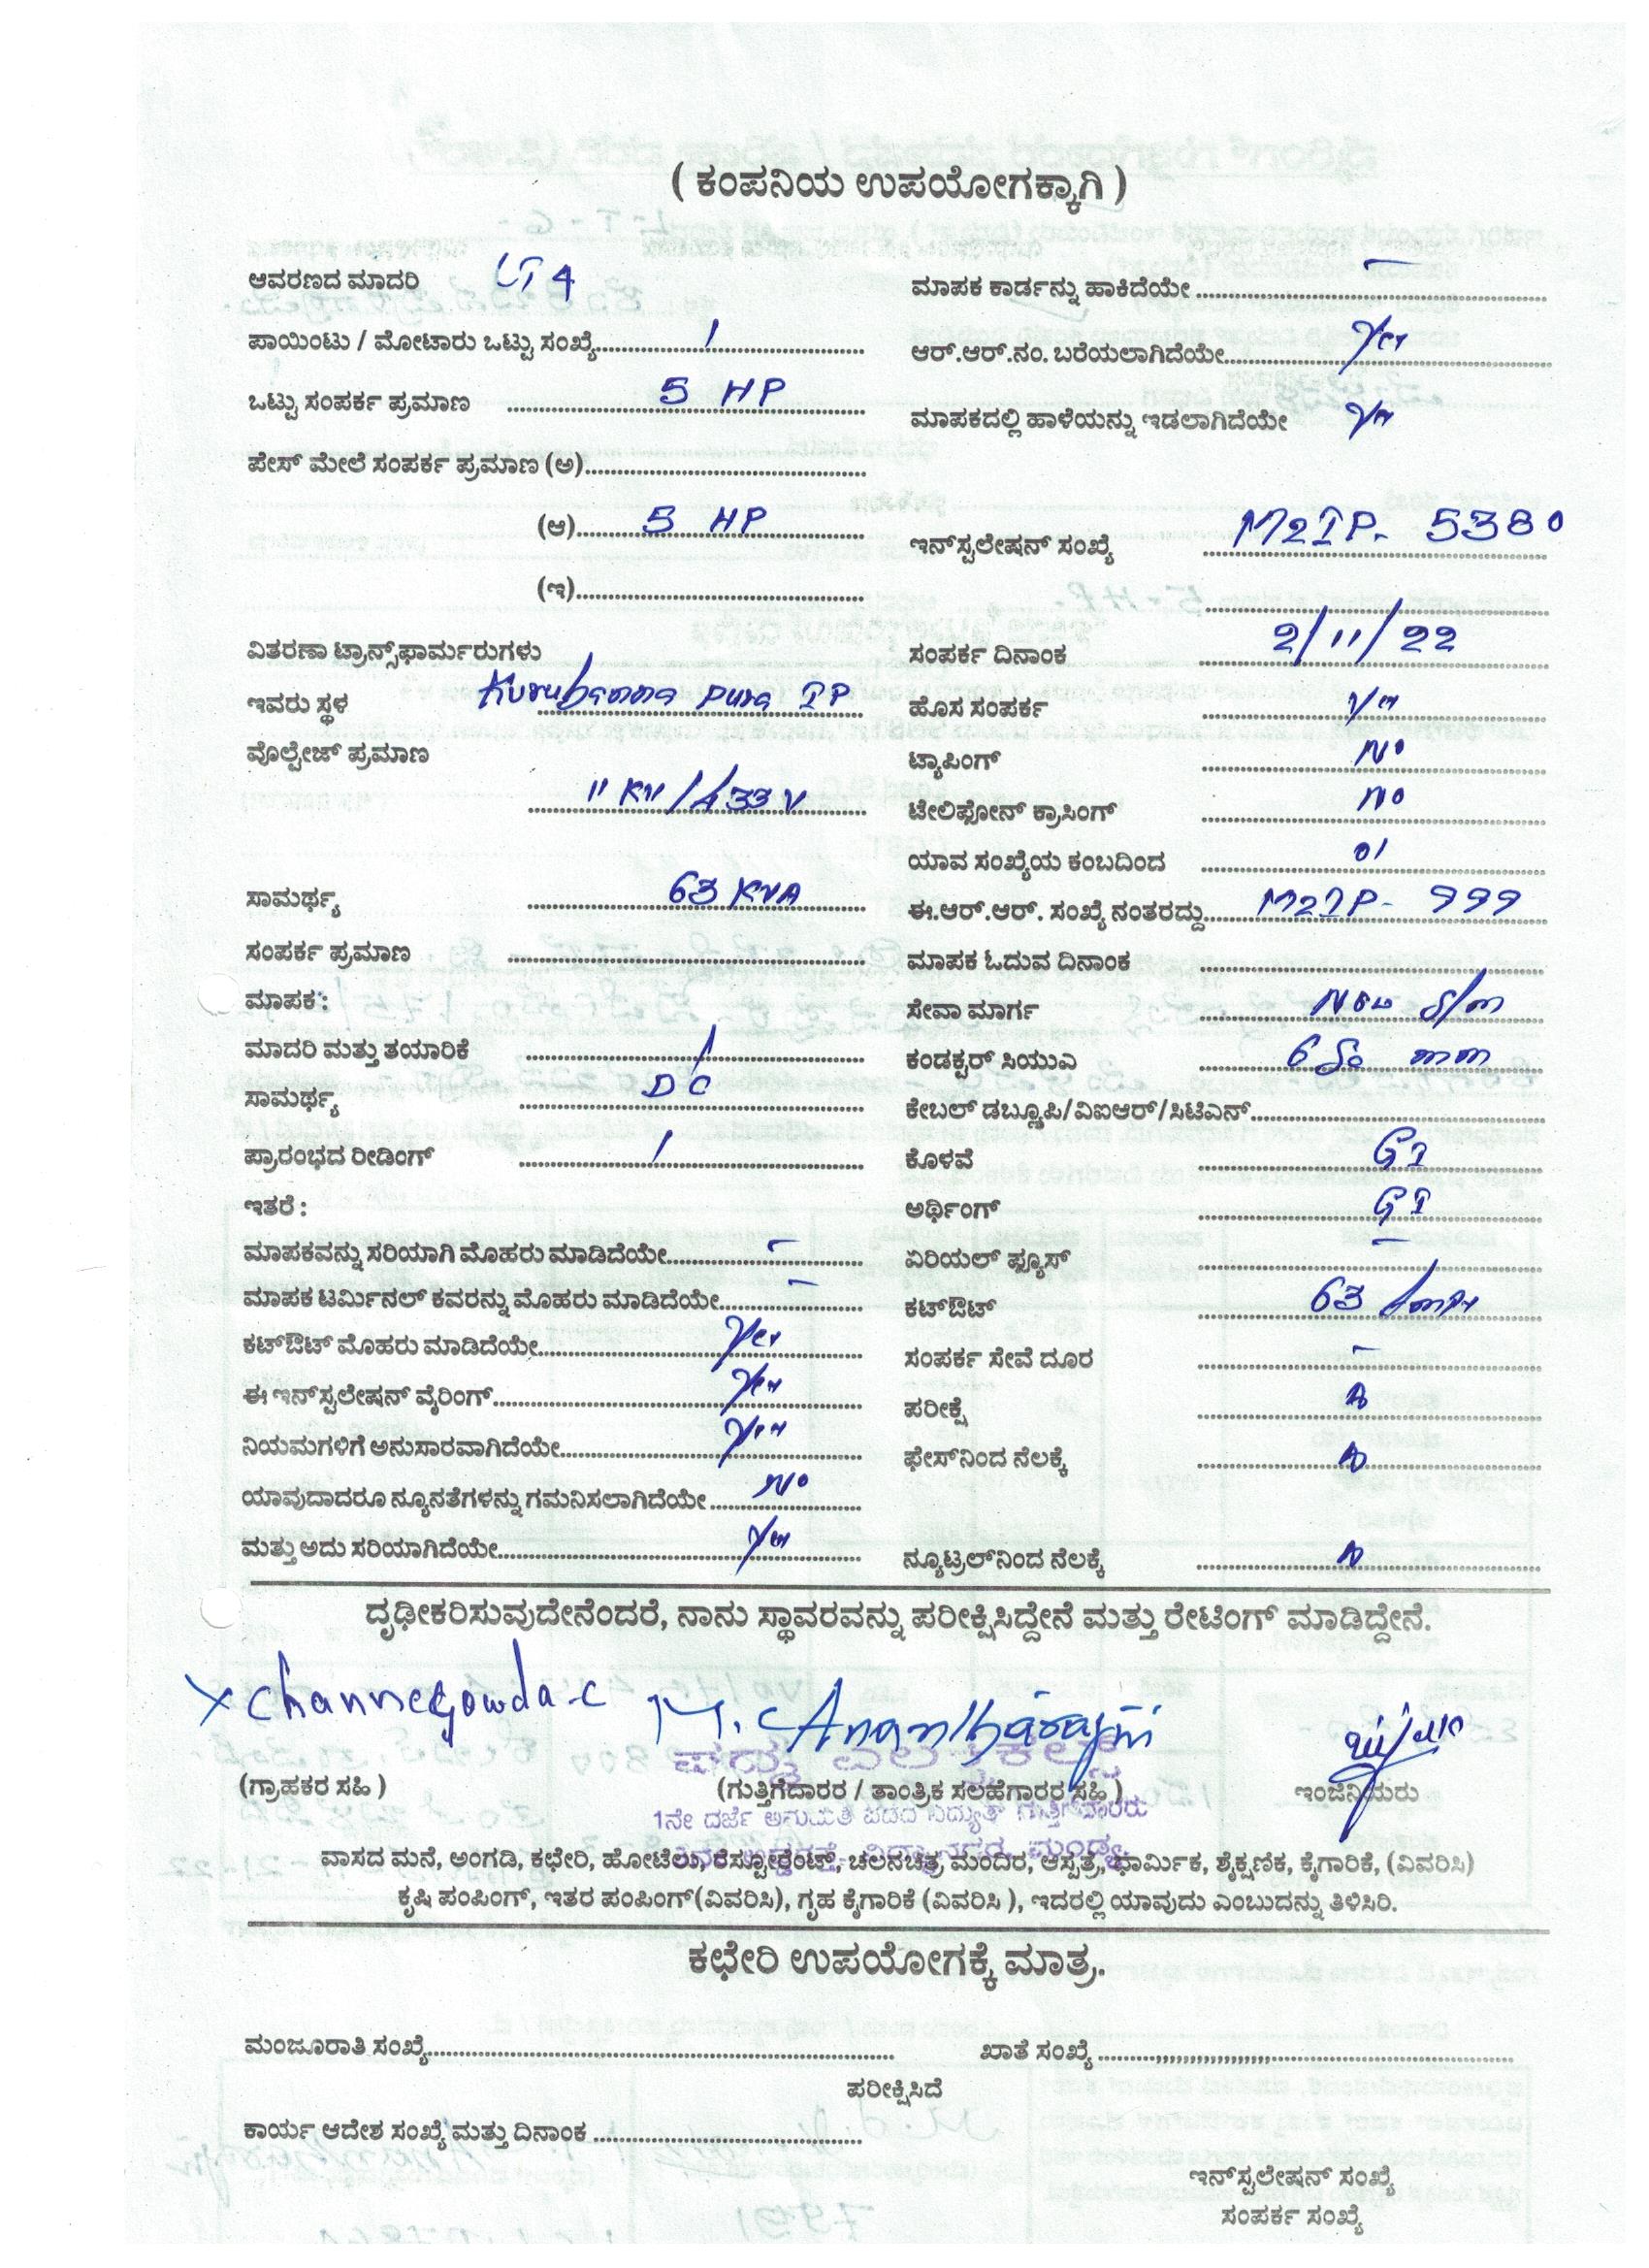 ( ಕಂಪನಿಯ ಉಪಯೋಗಕ್ಕಾಗಿ )
ಆವರಣದ ಮಾದರಿ LT 4
ಮಾಪಕ ಕಾರ್ಡನ್ನು ಹಾಕಿದೆಯೇ –
ಪಾಯಿಂಟು / ಮೋಟಾರು ಒಟ್ಟು ಸಂಖ್ಯೆ 1
ಆರ್.ಆರ್.ನಂ. ಬರೆಯಲಾಗಿದೆಯೇ Yes
ಒಟ್ಟು ಸಂಪರ್ಕ ಪ್ರಮಾಣ 5 HP
ಮಾಪಕದಲ್ಲಿ ಹಾಳೆಯನ್ನು ಇಡಲಾಗಿದೆಯೇ Yes
ಪೇಸ್ ಮೇಲೆ ಸಂಪರ್ಕ ಪ್ರಮಾಣ (ಅ)
(ಆ) 5 HP
ಇನ್‌ಸ್ಟಲೇಷನ್ ಸಂಖ್ಯೆ M2IP- 5380
(ಇ)
ವಿತರಣಾ ಟ್ರಾನ್ಸ್‌ಫಾರ್ಮರುಗಳು
ಸಂಪರ್ಕ ದಿನಾಂಕ 2/11/22
ಇವರು ಸ್ಥಳ Kurubanna pura IP
ಹೊಸ ಸಂಪರ್ಕ Yes
ವೊಲ್ಟೇಜ್ ಪ್ರಮಾಣ
ಟ್ಯಾಪಿಂಗ್ No
11 KV / 433 V
ಟೇಲಿಫೋನ್ ಕ್ರಾಸಿಂಗ್ No
ಯಾವ ಸಂಖ್ಯೆಯ ಕಂಬದಿಂದ 01
ಸಾಮರ್ಥ್ಯ 63 KVA
ಈ.ಆರ್.ಆರ್. ಸಂಖ್ಯೆ ನಂತರದ್ದು M2IP- 999
ಸಂಪರ್ಕ ಪ್ರಮಾಣ
ಮಾಪಕ ಓದುವ ದಿನಾಂಕ
ಮಾಪಕ :
ಸೇವಾ ಮಾರ್ಗ New S/m
ಮಾದರಿ ಮತ್ತು ತಯಾರಿಕೆ /
ಕಂಡಕ್ಟರ್ ಸಿಯುಎ 6 mm
ಸಾಮರ್ಥ್ಯ DC
ಕೇಬಲ್ ಡಬ್ಲ್ಯೂಪಿ/ವಿಐಆರ್/ಸಿಟಿಎನ್
ಪ್ರಾರಂಭದ ರೀಡಿಂಗ್ /
ಕೊಳವೆ GI
ಇತರೆ :
ಅರ್ಥಿಂಗ್ GI
ಮಾಪಕವನ್ನು ಸರಿಯಾಗಿ ಮೊಹರು ಮಾಡಿದೆಯೇ –
ಏರಿಯಲ್ ಫ್ಯೂಸ್ –
ಮಾಪಕ ಟರ್ಮಿನಲ್ ಕವರನ್ನು ಮೊಹರು ಮಾಡಿದೆಯೇ –
ಕಟ್‌ಔಟ್ 63 Amps
ಕಟ್‌ಔಟ್ ಮೊಹರು ಮಾಡಿದೆಯೇ Yes
ಸಂಪರ್ಕ ಸೇವೆ ದೂರ –
ಈ ಇನ್‌ಸ್ಟಲೇಷನ್ ವೈರಿಂಗ್ Yes
ಪರೀಕ್ಷೆ
ನಿಯಮಗಳಿಗೆ ಅನುಸಾರವಾಗಿದೆಯೇ Yes
ಫೇಸ್‌ನಿಂದ ನೆಲಕ್ಕೆ
ಯಾವುದಾದರೂ ನ್ಯೂನತೆಗಳನ್ನು ಗಮನಿಸಲಾಗಿದೆಯೇ No
ಮತ್ತು ಅದು ಸರಿಯಾಗಿದೆಯೇ Yes
ನ್ಯೂಟ್ರಲ್‌ನಿಂದ ನೆಲಕ್ಕೆ
ದೃಢೀಕರಿಸುವುದೇನೆಂದರೆ, ನಾನು ಸ್ಥಾವರವನ್ನು ಪರೀಕ್ಷಿಸಿದ್ದೇನೆ ಮತ್ತು ರೇಟಿಂಗ್ ಮಾಡಿದ್ದೇನೆ.
x Channegowda-C M. C Anantharaju
(ಗ್ರಾಹಕರ ಸಹಿ ) (ಗುತ್ತಿಗೆದಾರರ / ತಾಂತ್ರಿಕ ಸಲಹೆಗಾರರ ಸಹಿ ) ಇಂಜಿನಿಯರು
1ನೇ ದರ್ಜೆ ಅನುಮತಿ ಪಡೆದ ವಿದ್ಯುತ್ ಗುತ್ತಿಗೆದಾರರು
ವಾಸದ ಮನೆ, ಅಂಗಡಿ, ಕಛೇರಿ, ಹೋಟೆಲು, ರೆಸ್ಟೋರೆಂಟ್, ಚಲನಚಿತ್ರ ಮಂದಿರ, ಆಸ್ಪತ್ರೆ, ಧಾರ್ಮಿಕ, ಶೈಕ್ಷಣಿಕ, ಕೈಗಾರಿಕೆ, (ವಿವರಿಸಿ)
ಕೃಷಿ ಪಂಪಿಂಗ್, ಇತರ ಪಂಪಿಂಗ್(ವಿವರಿಸಿ), ಗೃಹ ಕೈಗಾರಿಕೆ (ವಿವರಿಸಿ ), ಇದರಲ್ಲಿ ಯಾವುದು ಎಂಬುದನ್ನು ತಿಳಿಸಿರಿ.
ಕಛೇರಿ ಉಪಯೋಗಕ್ಕೆ ಮಾತ್ರ.
ಮಂಜೂರಾತಿ ಸಂಖ್ಯೆ ಖಾತೆ ಸಂಖ್ಯೆ
ಪರೀಕ್ಷಿಸಿದೆ
ಕಾರ್ಯ ಆದೇಶ ಸಂಖ್ಯೆ ಮತ್ತು ದಿನಾಂಕ
ಇನ್‌ಸ್ಟಲೇಷನ್ ಸಂಖ್ಯೆ
ಸಂಪರ್ಕ ಸಂಖ್ಯೆ